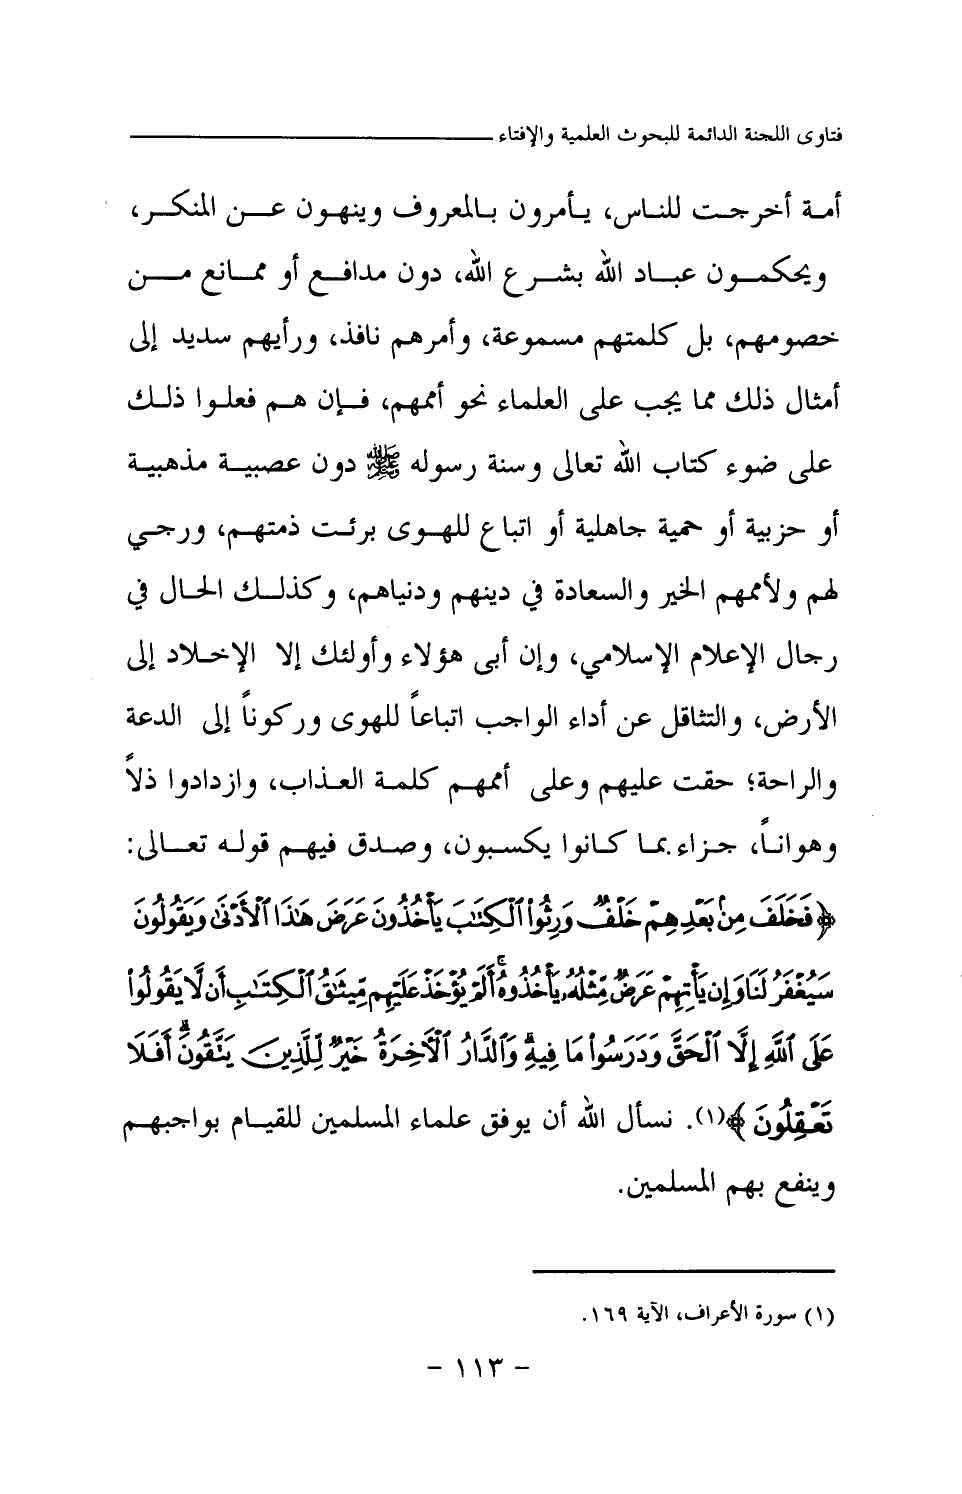 فتاوى اللجنة الدائمة للبحوث العلمية والإفتاء
أمة أخرجت للناس، يأمرون بالمعروف وينهون عن المنكر،
ويحكمون عباد الله بشرع الله، دون مدافع أو ممانع من
خصومهم، بل كلمتهم مسموعة، وأمرهم نافذ، ورأيهم سديد إلى
أمثال ذلك مما يجب على العلماء نحو أممهم، فإن هم فعلوا ذلك
على ضوء كتاب الله تعالى وسنة رسوله ﷺ دون عصبية مذهبية
أو حزبية أو حمية جاهلية أو اتباع للهوى برئت ذمتهم، ورجي
لهم ولأممهم الخير والسعادة في دينهم ودنياهم، وكذلك الحال في
رجال الإعلام الإسلامي، وإن أبى هؤلاء وأولئك إلا الإخلاد إلى
الأرض، والتثاقل عن أداء الواجب اتباعاً للهوى وركوناً إلى الدعة
والراحة؛ حقت عليهم وعلى أممهم كلمة العذاب، وازدادوا ذلاً
وهواناً، جزاء بما كانوا يكسبون، وصدق فيهم قوله تعالى:
﴿فَخَلَفَ مِنۢ بَعۡدِهِمۡ خَلۡفٞ وَرِثُواْ ٱلۡكِتَٰبَ يَأۡخُذُونَ عَرَضَ هَٰذَا ٱلۡأَدۡنَىٰ وَيَقُولُونَ
سَيُغۡفَرُ لَنَا وَإِن يَأۡتِهِمۡ عَرَضٞ مِّثۡلُهُۥ يَأۡخُذُوهُۚ أَلَمۡ يُؤۡخَذۡ عَلَيۡهِم مِّيثَٰقُ ٱلۡكِتَٰبِ أَن لَّا يَقُولُواْ
عَلَى ٱللَّهِ إِلَّا ٱلۡحَقَّ وَدَرَسُواْ مَا فِيهِۗ وَٱلدَّارُ ٱلۡأٓخِرَةُ خَيۡرٞ لِّلَّذِينَ يَتَّقُونَۚ أَفَلَا
تَعۡقِلُونَ﴾(١). نسأل الله أن يوفق علماء المسلمين للقيام بواجبهم
وينفع بهم المسلمين.
(١) سورة الأعراف، الآية ١٦٩.
- ١١٣ -